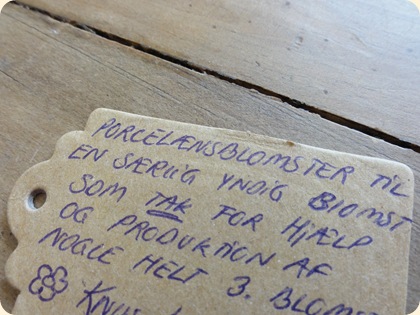 PORCELÆNSBLOMSTER TIL
EN SÆRLIG YNDIG BLOMST
SOM TAK FOR HJÆLP
OG PRODUKTION AF
NOGLE HELT 3. BLOMST